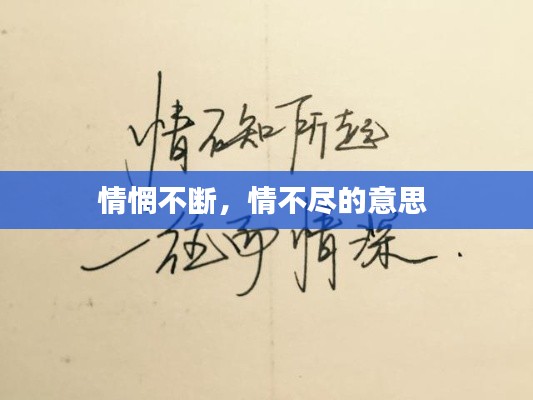 情不知所起
情惘不断，情不尽的意思
一往而情深.